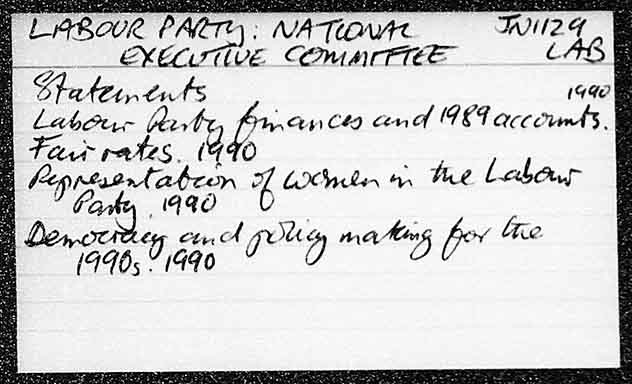 LABOUR PARTY: NATIONAL JN1129
EXECUTIVE COMMITTEE LAB
Statements 1990
Labour Party finances and 1989 accounts.
Fair rates. 1990
Representation of women in the Labour
Party. 1990
Democracy and policy making for the
1990s. 1990